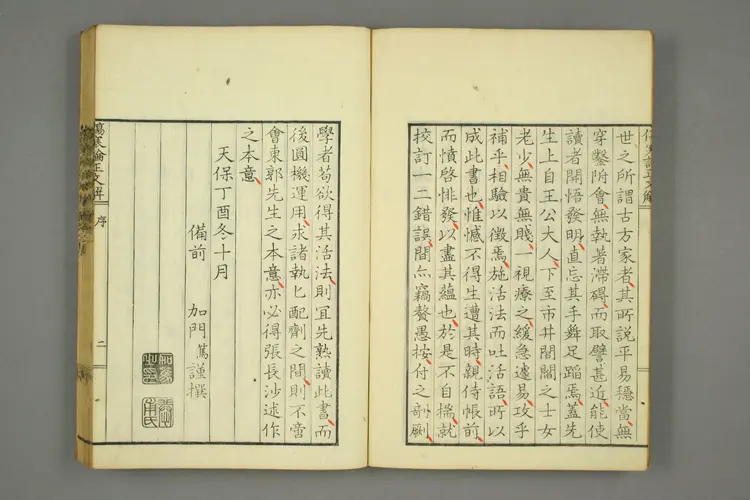 世之所謂古方家者其所說平易穩當無
穿鑿附會無執著滯碍而取譬甚近能使
讀者開悟發明直忘其手舞足蹈焉蓋先
生上自王公大人下至市井閭閻之士女
老少無貴無賤一視療之緩急遽易攻乎
補乎相驗以徵焉施活法而吐活語所以
成此書也惟憾不得生遭其時親侍帳前
而憤啓悱發以盡其蘊也於是不自揣就
挍訂一二錯誤間亦竊贅愚按付之剞劂
學者苟欲得其活法則宜先熟讀此書而
後圓機運用求諸執匕配劑之間則不啻
會東郭先生之本意亦必得張長沙述作
之本意
天保丁酉冬十月
備前 加門篤謹撰
傷寒論正文解 序 二